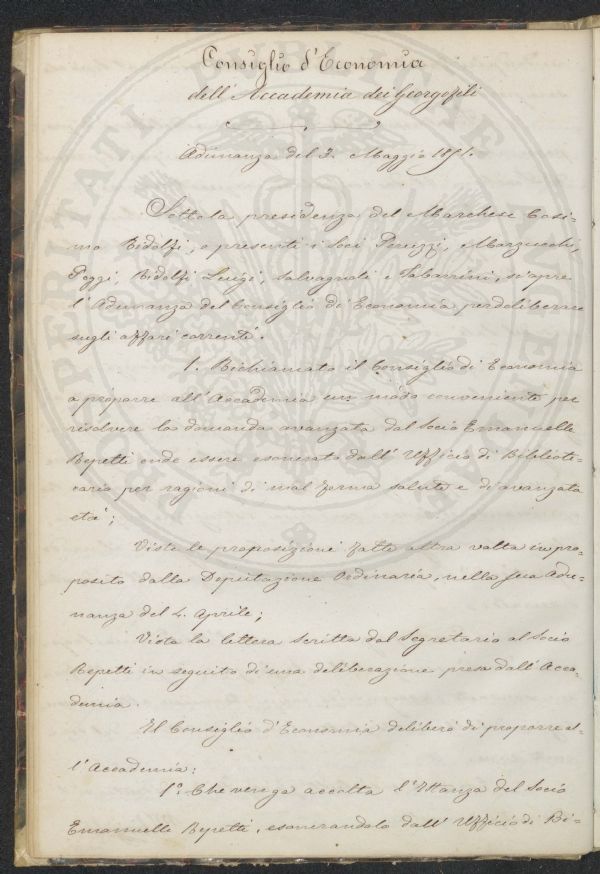 Consiglio d'Economia
dell'Accademia dei Georgofili
Adunanza del 3. Maggio 1851.
Sotto la presidenza del Marchese Cosi-
mo Ridolfi, e presenti i Soci Peruzzi, Marzucchi,
Poggi, Ridolfi Luigi, Salvagnoli e Tabarrini, si apre
l'Adunanza del Consiglio di Economia per deliberare
sugli affari correnti.
1. Richiamato il Consiglio di Economia
a proporre all'Accademia un modo conveniente per
risolvere la domanda avanzata dal Socio Emanuelle
Repetti onde essere esonerato dall'Uffizio di Bibliote-
cario per ragioni di mal ferma salute e di avanzata
età;
Viste le proposizioni fatte altra volta in pro-
posito dalla Deputazione Ordinaria, nella sua Adu-
nanza del 4. Aprile;
Vista la lettera scritta dal Segretario al Socio
Repetti in seguito di una deliberazione presa dall'Acca-
demia.
Il Consiglio d'Economia deliberò di proporre al-
l'Accademia:
1.° Che venga accolta l'Istanza del Socio
Emanuelle Repetti, esonerandolo dall'Uffizio di Bi-
PROSPERITATI PUBLICAE AUGENDAE